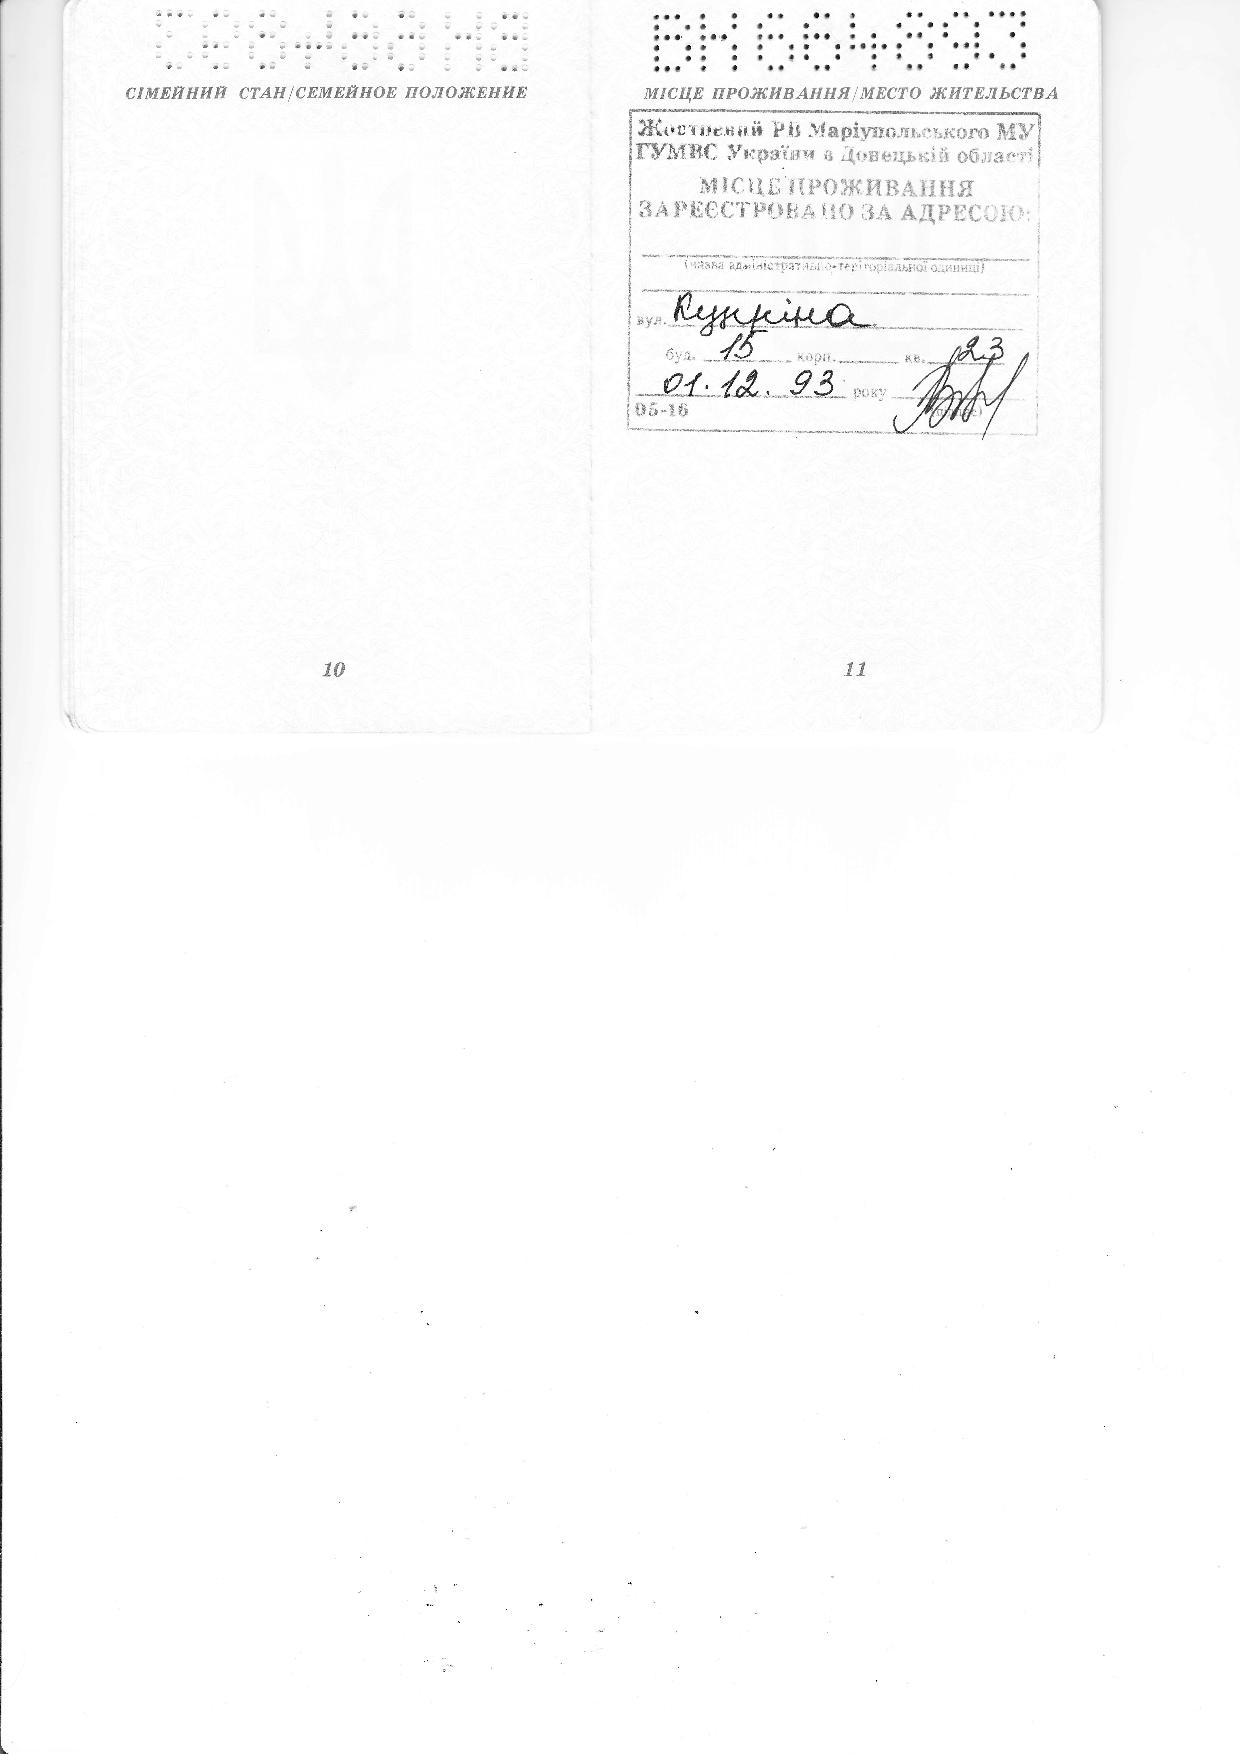 СІМЕЙНИЙ СТАН/СЕМЕЙНОЕ ПОЛОЖЕНИЕ
10
ВМ664893
МІСЦЕ ПРОЖИВАННЯ/МЕСТО ЖИТЕЛЬСТВА
Жовтневий РВ Маріупольського МУ
ГУМВС України в Донецькій області
МІСЦЕ ПРОЖИВАННЯ
ЗАРЕЄСТРОВАНО ЗА АДРЕСОЮ:
(назва адміністративно-територіальної одиниці)
вул. Купріна
буд. 15 корп. кв. 23
01.12.93 року
05-16
11